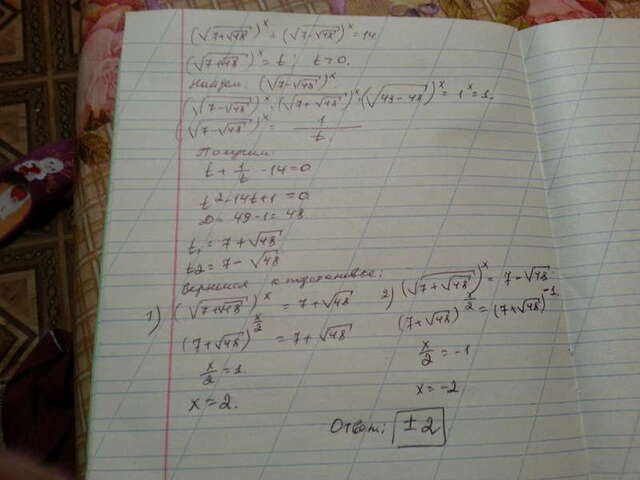 (√(7+√48))^x + (√(7-√48))^x = 14
(√(7+√48))^x = t; t>0.
Найдем: (√(7-√48))^x.
(√(7-√48))^x · (√(7+√48))^x = (√(49-48))^x = 1^x = 1.
(√(7-√48))^x = 1/t
Получим
t + 1/t - 14 = 0
t² - 14t + 1 = 0
D = 49 - 1 = 48
t₁ = 7 + √48
t₂ = 7 - √48
Вернемся к подстановке:
1) (√(7+√48))^x = 7 + √48
(7+√48)^(x/2) = 7 + √48
x/2 = 1
x = 2.
2) (√(7+√48))^x = 7 - √48
(7+√48)^(x/2) = (7+√48)^(-1).
x/2 = -1
x = -2
Ответ: ±2